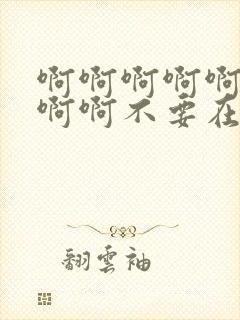 啊啊啊啊啊
啊啊不要在
翻雲袖